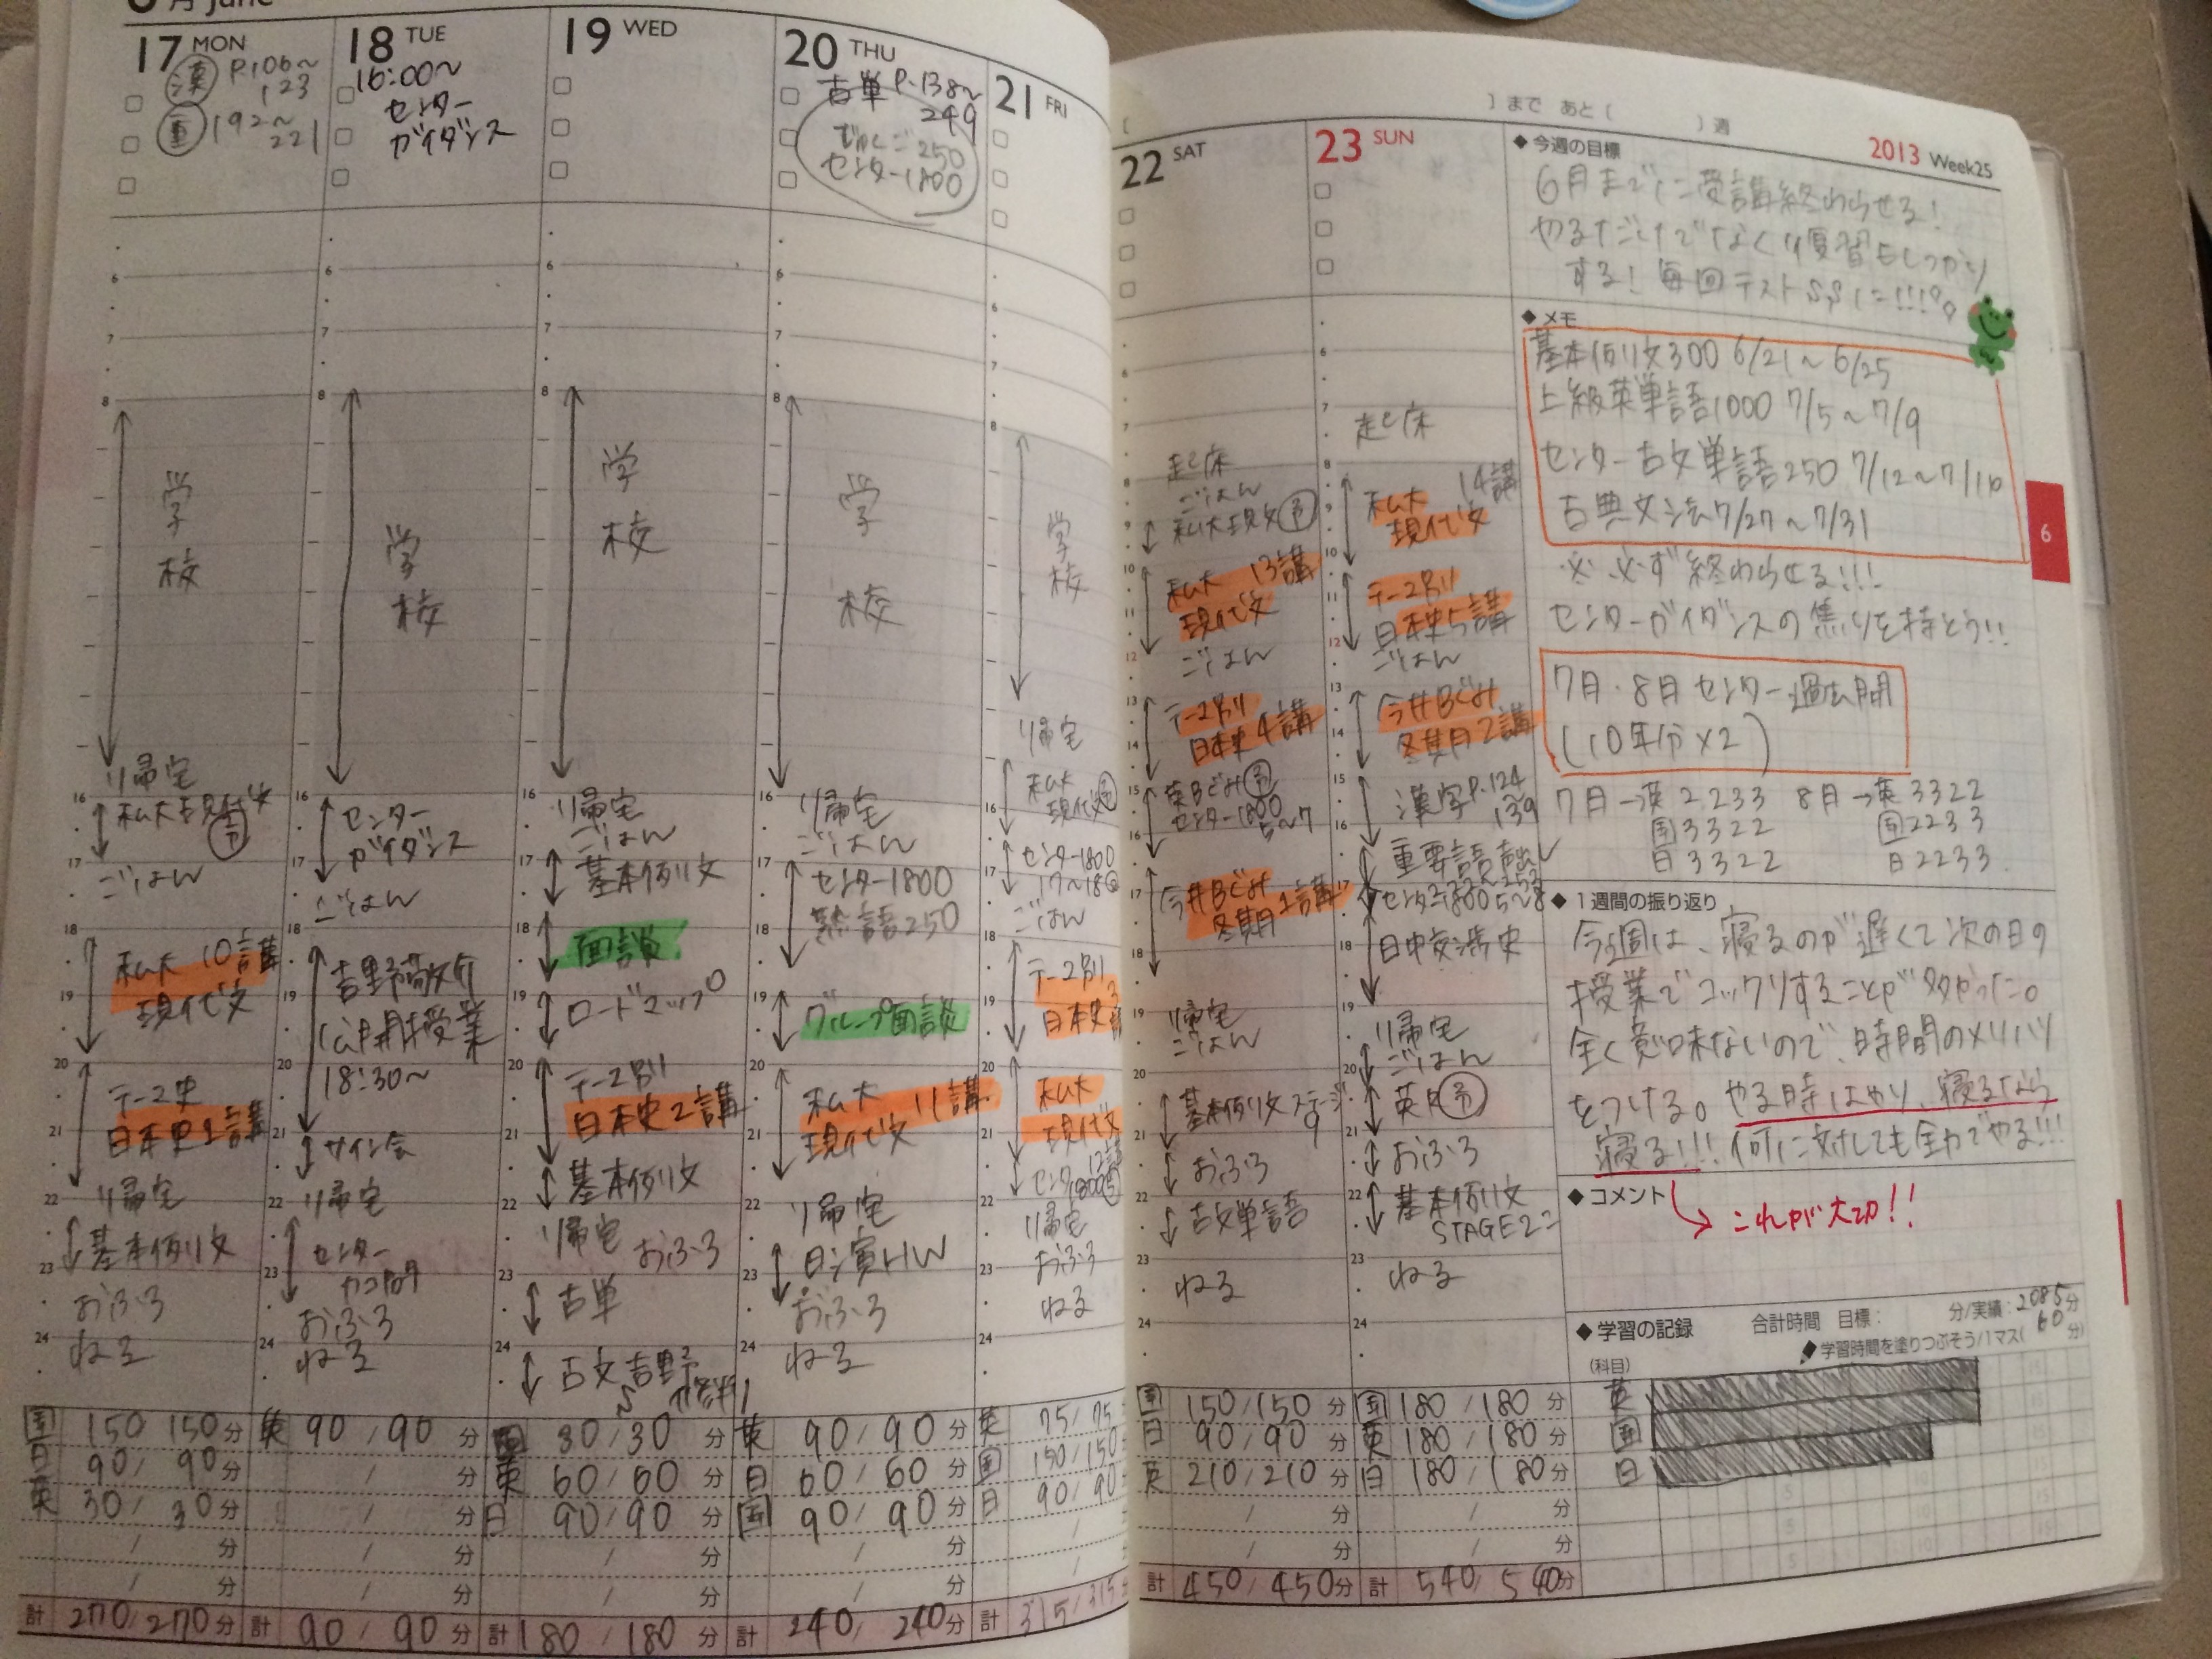 6月 June
17 MON
漢 P.106~
123
重 192~
221
学
校
帰宅
私大現代文
予
ごはん
私大 10講
現代文
テーマ史
日本史1講
帰宅
基本例文
おふろ
ねる
国 150 150分
日 90/ 90分
英 30/ 30分
計 270/270分
18 TUE
16:00~
センター
ガイダンス
学
校
センター
ガイダンス
ごはん
吉野敬介
公開授業
18:30~
サイン会
帰宅
センター
カコ問
おふろ
ねる
英 90/90分
計 90/90分
19 WED
学
校
帰宅
ごはん
基本例文
面談
ロードマップ
テーマ別
日本史2講
基本例文
帰宅 おふろ
古単
古文吉野
国 30/30分
英 60/60分
日 90/90分
計 180/180分
20 THU
古単 P.138~
249
じゅくご250
センター1800
学
校
帰宅
ごはん
センター1800
熟語250
グループ面談
私大 11講
現代文
帰宅
日演HW
おふろ
ねる
英 90/90分
日 60/60分
国 90/90分
計 240/240分
21 FRI
学
校
帰宅
私大
現代文予
センター1800
ごはん
テーマ別
日本史3
私大
現代文
12講
帰宅
おふろ
ねる
英 75/75
国 150/150
日 90/90
計 315/315
22 SAT
起床
ごはん
私大現文予
私大 13講
現代文
ごはん
テーマ別
日本史4講
英Bぐみ予
センター1800
5~7
今井Bぐみ
冬期1講
帰宅
ごはん
基本例文ステージ
9
おふろ
古文単語
ねる
国 150/150分
日 90/90分
英 210/210分
計 450/450分
23 SUN
起床
私大 14講
現代文
テーマ別
日本史5講
ごはん
今井Bぐみ
冬期2講
漢字P.124
139
重要語
センター1800 5~8
日中交渉史
帰宅
ごはん
英予
おふろ
基本例文
STAGE2
ねる
国 180/180分
英 180/180分
日 180/180分
計 540/540分
〔 〕まで あと( )週
2013 Week25
◆今週の目標
6月までに受講終わらせる!
やるだけでなく復習もしっかり
する!毎回テストSSに!!!
◆メモ
基本例文300 6/21~6/25
上級英単語1000 7/5~7/9
センター古文単語250 7/12~7/16
古典文法7/27~7/31
※必ず終わらせる!!!
センターガイダンスの焦りを持とう!!
7月・8月センター過去問
(10年分×2)
7月→英2233 8月→英3322
国3322 国2233
日3322 日2233
6
◆1週間の振り返り
今週は、寝るのが遅くて次の日の
授業でコックリすることが多かった。
全く意味ないので、時間のメリハリ
をつける。やる時はやり、寝るなら
寝る!!!何に対しても全力でやる!!!
◆コメント
これが大切!!
◆学習の記録 合計時間 目標: 分/実績:2085分
学習時間を塗りつぶそう/1マス(60分)
(科目)
英
国
日